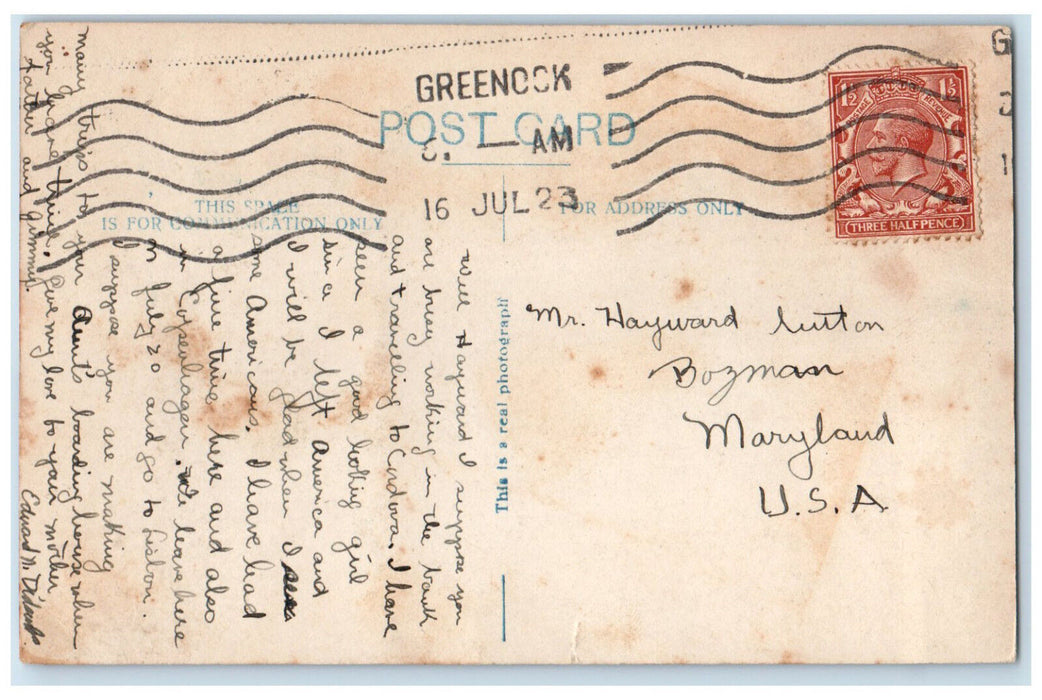 GREENOCK
POST CARD
AM
16 JUL 23
THIS SPACE
IS FOR COMMUNICATION ONLY
FOR ADDRESS ONLY
1½ 1½
POSTAGE REVENUE
THREE HALFPENCE
Well Hayward I suppose you
are busy working in the bank
and travelling to Cordova. I have
seen a good looking girl
since I left America and
I will be glad when I see
some Americans. I have had
a fine time here and also
in Copenhagen. We leave here
on July 20 and go to Lisbon.
I suppose you are making
many trips to your Aunt's boarding house when
you have time. Give my love to your mother
father and
Edward N.
This is a real photograph
Mr. Hayward Lutton
Bozman
Maryland
U.S.A